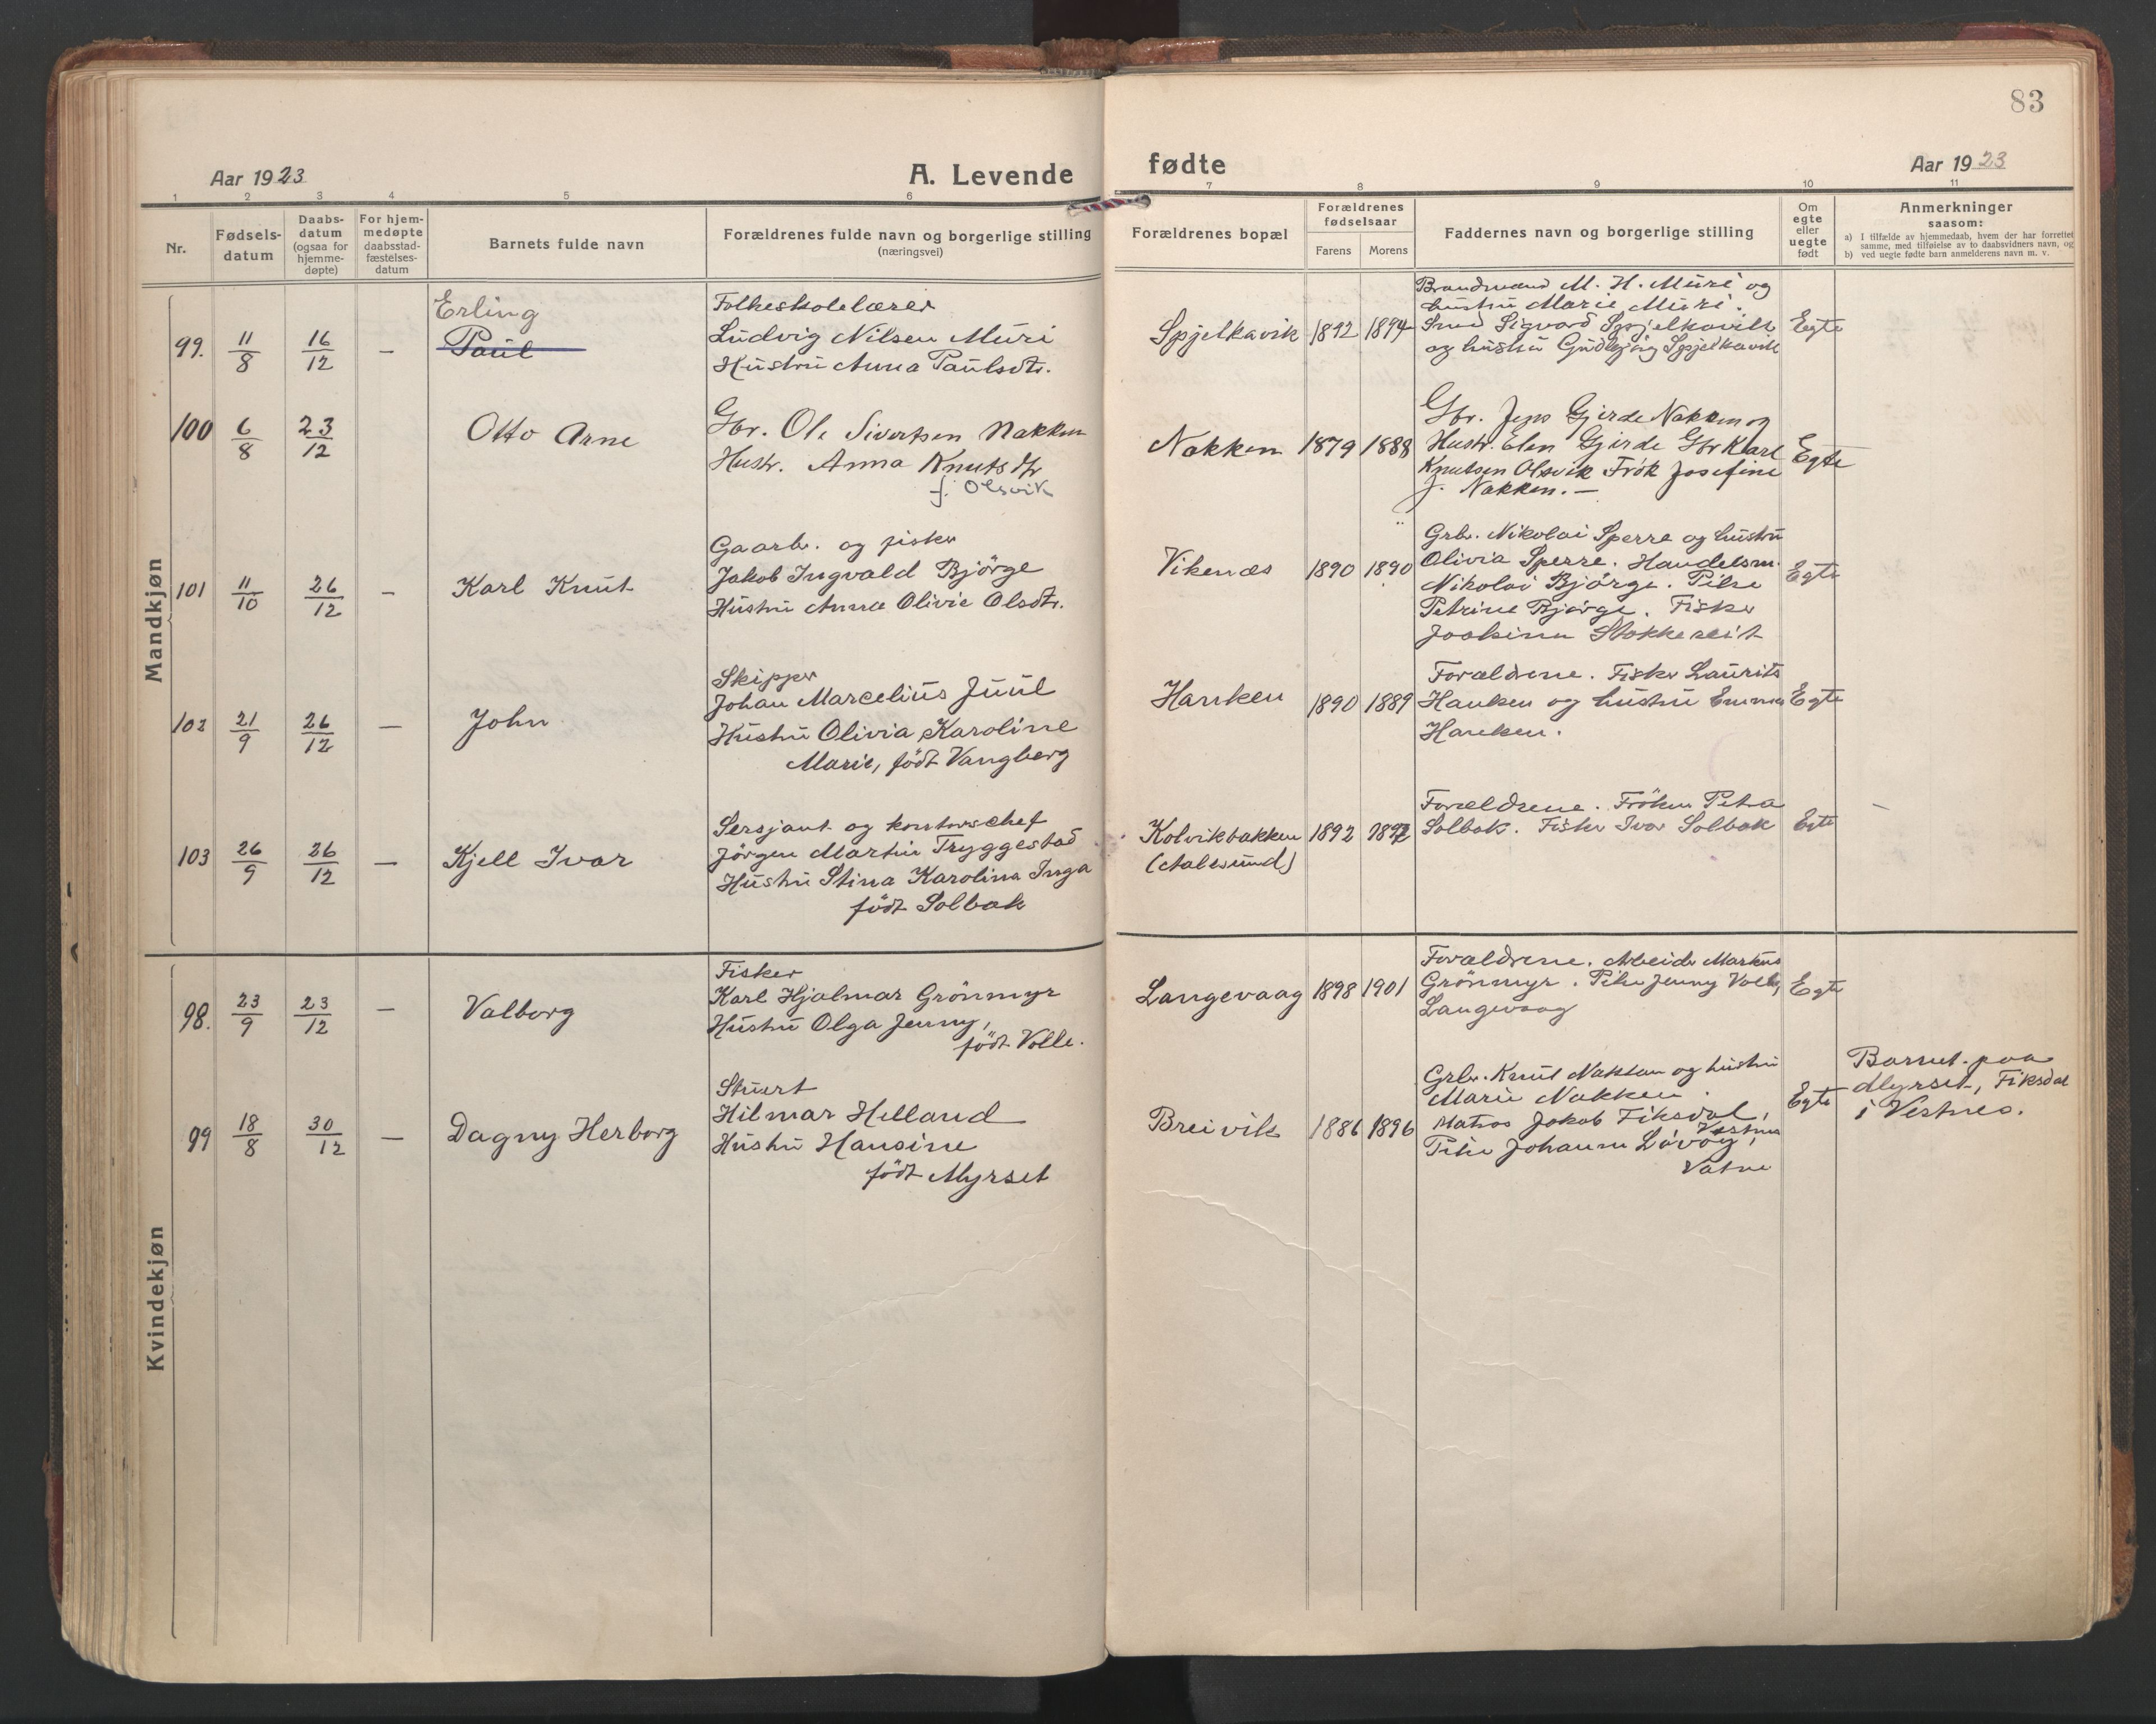 83
Aar 1923
A. Levende
fødte
Aar 1923
1 2 3 4 5 6 7 8 9 10 11
Nr.
Fødsels-
datum
Daabs-
datum
(ogsaa for
hjemme-
døpte)
For hjem-
medøpte
daabsstad-
fæstelses-
datum
Barnets fulde navn
Forældrenes fulde navn og borgerlige stilling
(næringsvei)
Forældrenes bopæl
Forældrenes
fødselsaar
Farens Morens
Faddernes navn og borgerlige stilling
Om
egte
eller
uegte
født
Anmerkninger
saasom:
a) I tilfælde av hjemmedaab, hvem der har forrettet
samme, med tilføielse av to daabsvidners navn, og
b) ved uegte fødte barn anmelderens navn m. v.
Mandkjøn
99. 11/8 16/12 —
Erling
Paul
Folkeskolelærer
Ludvig Nilsen Muri
Hustru Anna Paulsdtr.
Spjelkavik 1892 1894
Brandmand M. H. Muri og
hustru Marie Muri.
Smed Sigvard Spjelkavik
og hustru Gudbjørg Spjelkavik
Egte
100 6/8 23/12
Otto Arne
Gbr. Ole Sivertsen Nakken
Hustr. Anna Knutsdtr
f. Olsvik
Nakken 1879 1888
Gbr. Jens Gjerde Nakken og
Hustr. Elen Gjerde Gbr Karl
Knutsen Olsvik Frøk Josefine
J. Nakken. —
Egte
101 11/10 26/12 —
Karl Knut
Gaarbr. og fisker
Jakob Ingvald Björge
Hustru Anna Olivie Olsdtr.
Vikenæs 1890 1890
Grbr. Nikolai Sperre og hustru
Olivia Sperre. Handelsm.
Nikolai Björge. Pike
Petrine Björge. Fisker
Joakim Stokkereit
Egte
102 21/9 26/12 —
John
Skipper
Johan Marcelius Juul
Hustru Olivia Karoline
Marie, född Vangberg
Hanken 1890 1889
Forældrene. Fisker Laurits
Hanken og hustru Emma
Hanken.
Egte
103 26/9 26/12 —
Kjell Ivar
Sersjant og kontorschef
Jörgen Martin Tryggestad
Hustru Stina Karolina Inga
född Solbak
Kolvikbakken
(Aalesund)
1892 1897
Forældrene. Fröken Petra
Solbak. Fisker Ivar Solbak
Egte
Kvindekjøn
98. 23/9 23/12 —
Valborg
Fisker
Karl Hjalmar Grönmyr
Hustru Olga Jenny,
född Volle.
Langevaag 1898 1901
Forældrene. Arbeider Markus
Grönmyr. Pike Jenny Volle,
Langevaag
Egte
99 18/8 30/12 —
Dagny Herborg
Stuert
Hilmar Helland
Hustru Hansine
född Myrset
Breivik 1886 1896
Grbr. Knut Nakken og hustru
Marie Nakken.
Matros Jakob Fiksdal,
Vestnes
Pike Johanne Lövög,
Vatne
Egte
Barnet paa
Myrset, Fiksdal
i Vestnes.